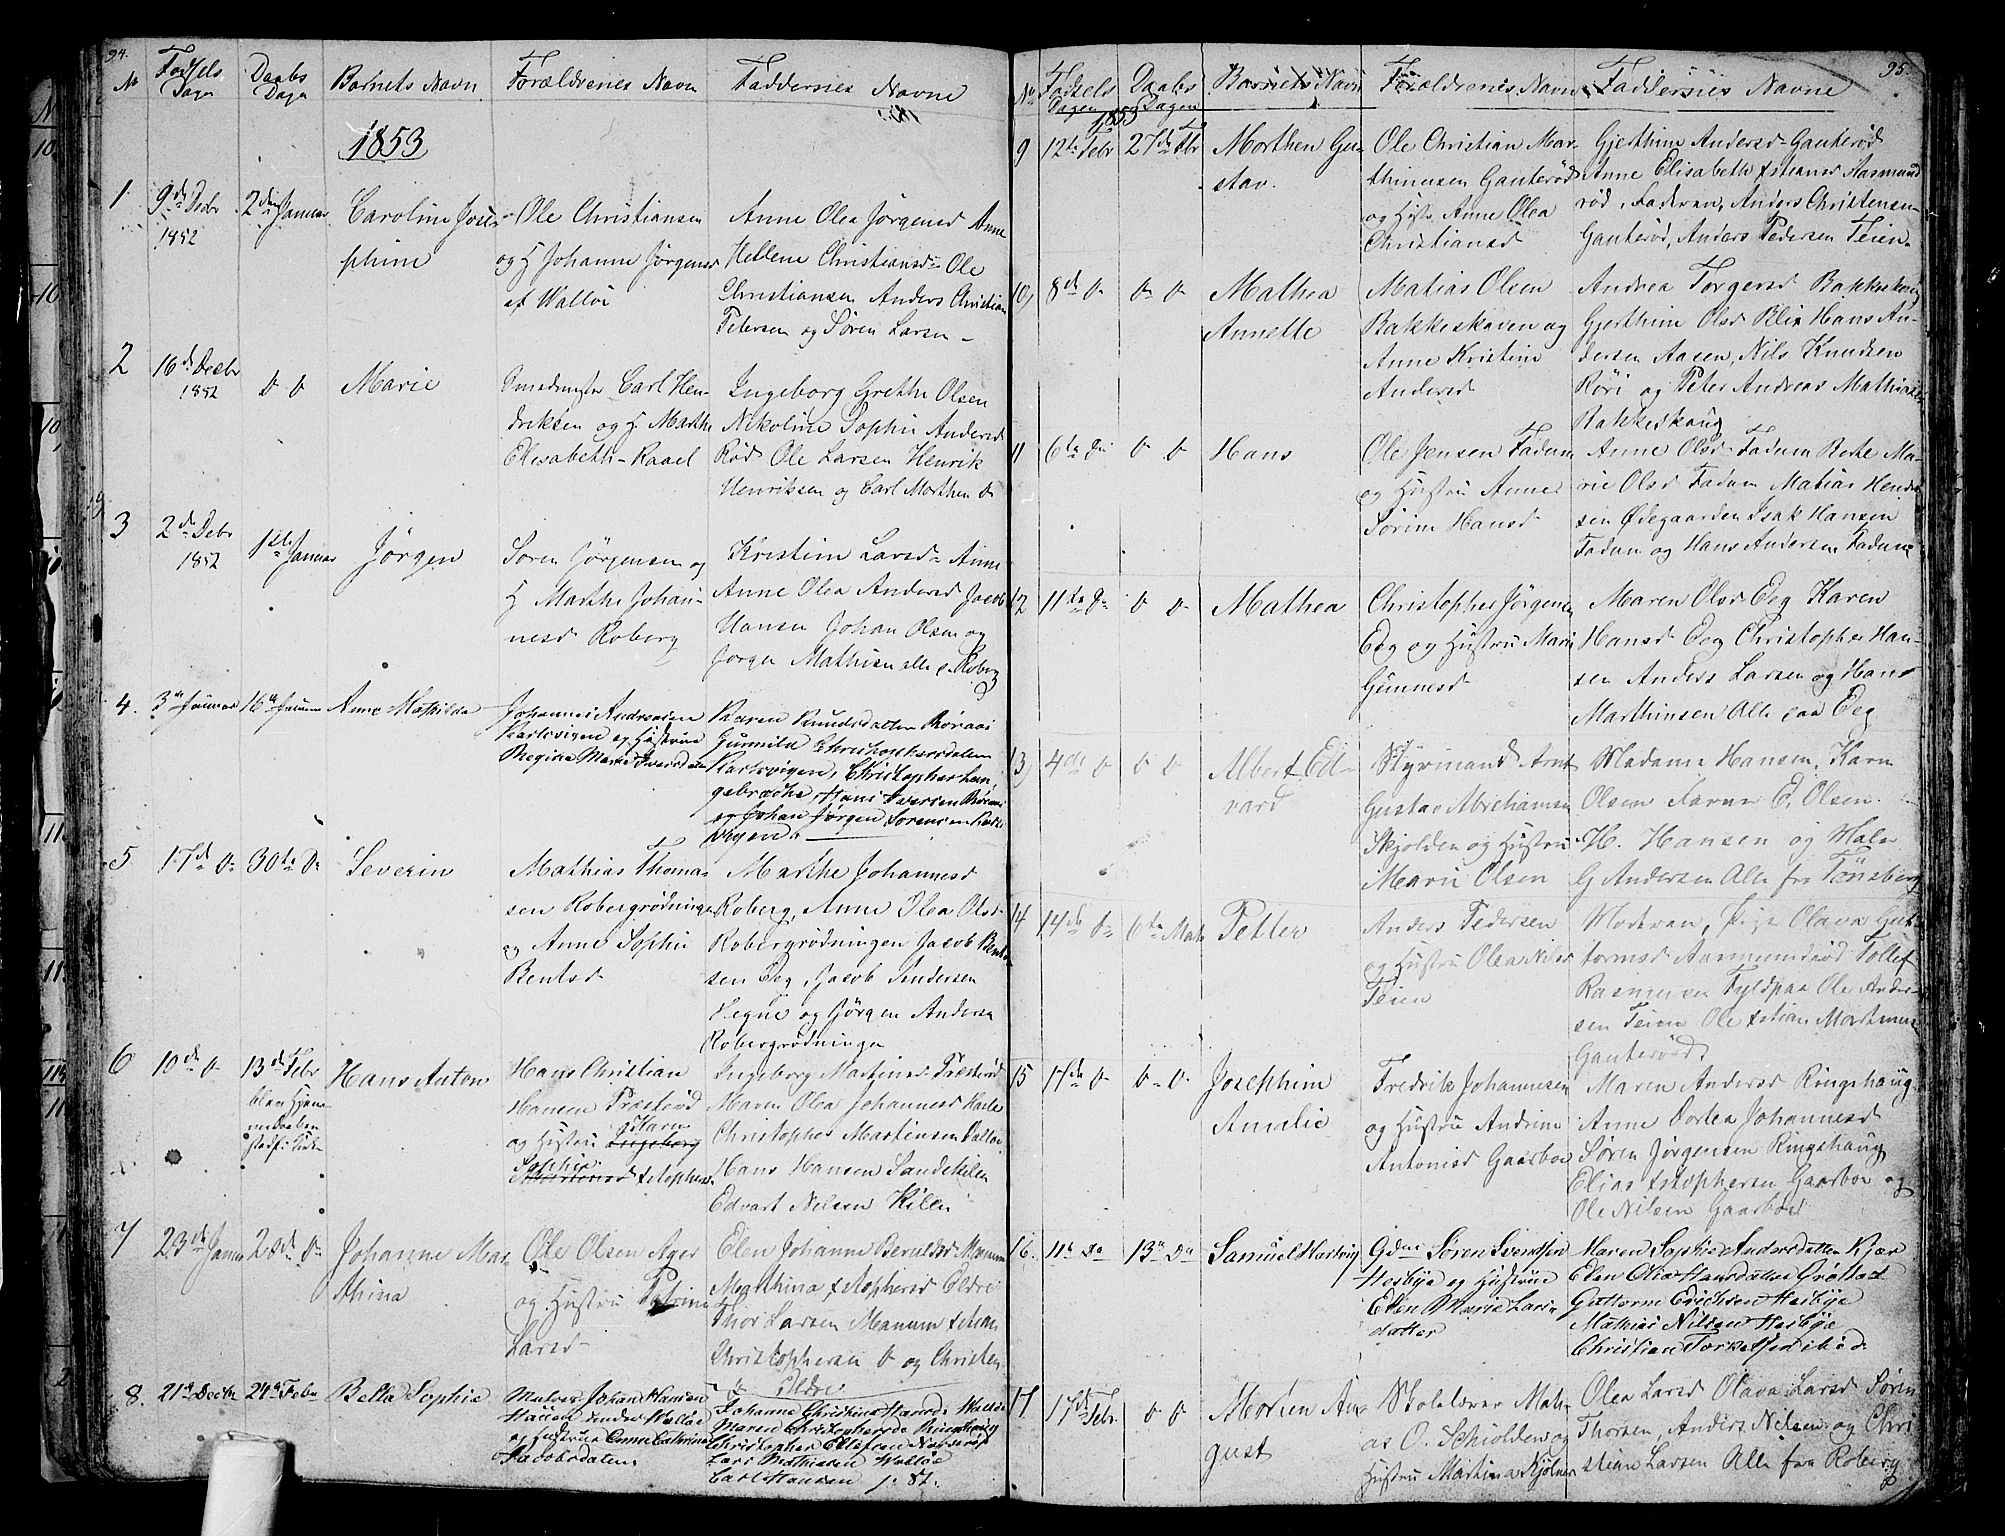 94.
No Fødsels Dage Daabs Dage Barnets Navn Forældrenes Navn Faddernes Navne
1853
1 9de Decbr 1852 2den Januar Caroline Jose-
phine
Ole Christiansen
og H Johanne Jørgensd
af Walløe
Anne Olea Jørgensd Anne
Hellene Christiansd Ole
Christiansen Anders Christian
Petersen og Søren Larsen
2 16de Decbr 1852 D D Marie
Carl Hen-
driksen og H. Marthe
Elisabeth Raael
Ingeborg Grethe Olsen
Nikoline Sophie Andersd
Rød Ole Larsen Henrik
Henriksen og Carl Morthen D
3 2de Debr 1852 1ste Januar Jørgen
Søren Jørgensen og
H Marthe Johan-
nesd Roberg
Kristine Larsd Anne
Anne Olea Andersd Jacob
Hansen Johan Olsen og
Jørgen Mathisen alle p. Roberg
4. 3de Januar 16de Januar Anne Mathilda
Johannes Andreasen
Karlsvigen og Hustrue
Regine Marie Iversdatter
Karen Knudsdatter Røraas
Gunnild Christophersdatter
Karlsvigen, Christopher Lan-
gebræche, Hans Iversen Røraas
og Johan Jørgen Sørensen Karls-
vigen.
5 17de D 30te D Severin
Mathias Thomas-
sen Robergrødningen
og Anne Sophie
Bentsd
Marthe Johannesd
Roberg, Anne Olea Olsd
Robergrødningen Jacob Bent-
sen Eeg, Jacob Andersen
Hegne og Jørgen Anders
Robergrødningen
6 10de D 13de Febr
blev Hjem-
medaaben
stadf. i Kirken
Hans Anton
Hans Christian
Hansen Præsterød
og Hustru Karen
Sophie Xstophersd
Ingeborg Martinsd Præsterød
Maren Olea Johannesd Karls
Christopher Martinsen Walløe
Hans Hansen Sandekilen
Edvart Nilsen Kilen
7 23de Januar 20de D Johanne Mar-
thina
Ole Olsen Ager
og Hustru Petrine
Larsd
Elen Johanne Berulsd Manum
Marthina Xstophersd Eldre
Thor Larsen Manum Xstian
Christophersen D og Christen
D Eldre
8. 21de Decbr 24de Febr Bella Sophie
Matros Johan Hansen
Hauen under Walløe
og Hustrue Anne Cathrine
Jacobsdatter
Johanne Christina Hansd Walløe
Maren Christophersd
Christopher Ellefsen
Lars Mathisen Walløe
Carl Hansen p. 81.
95.
No Fødsels Dagen Daabs Dagen Barnets Navn Forældrenes Navn Faddernes Navne
1853
9 12te Febr 27de Febr Morthen Gu-
stav.
Ole Christian Mar-
thinusen Gauterød
og Hustr. Anne Olea
Christiansd
Gjerthine Andersd Gauterød
Anne Elisabeth Xstiansd Aasmund-
rød, Faderen, Anders Christensen
Gauterød, Anders Pedersen Teien
10, 8de D D D Mathea
Annette
Matias Olsen
Bakkeskoven og
Anne Kristine
Andersd
Andrea Torgersd Bakkeskoug
Gjerthine Olsd Blix Hans An-
dersen Aasen, Nils Knudsen
Røri og Peter Andreas Mathiasen
Bakkeskoug
11 6te D D D Hans
Ole Jensen Fadum
og Hustru Anne
Sørine Hansd
Anne Olsd Fadum Berte Ma-
rie Olsd Fadum Matias Hend
sen Ødegaarden Isak Hansen
Fadum og Hans Andersen Fadum
12 11te D D D Mathea
Christopher Jørgensen
Eeg og Hustru Maria
Gunnesd
Maren Olsd Eeg Karen
Hansd Eeg Christopher Han-
sen Anders Larsen og Hans
Marthinsen Alle paa Eeg
13, 4de D D D Albert Ed-
vard
Styrmand Arnt
Gustav Abrahamsen
Skjolden og Hustru
Marie Olsen
Madame Hansen, Karn
Olsen Farver E. Olsen
H. Hansen og Maler
G Andersen Alle fra Tønsberg
14 14de D 6te Mar Petter
Anders Pedersen
og Hustru Olea Nilsd
Teien
Moderen, Pige Olava Gut-
tormsd Aasmundrød Tollef
Rasmusen Fyldpaa Ole Ander-
sen Teien Ole Xstian Marthinsen
Gauterød.
15 14de D D D Josephine
Amalie
Fredrik Johannesen
og Hustru Andrine
Antonisd Gaarboe
Maren Andersd Ringshaug
Anne Dortea Johannesd
Søren Jørgensen Ringshaug
Elias Xstophersen Gaarboe og
Ole Nilsen Gaarboe
16. 11te D 13de D Samuel Hartvig
Gdm Søren Svendsen
Hesbye og Hustrue
Elen Marie Lars-
datter
Maren Sophie Andersdatter Kjær
Elen Olia Hansdatter Grøttest
Guttorm Erichsen Hesbye
Mathias Nilsen Hesbye
Christian Torkelsen ibid.
17 17de Febr D D Morten Au-
gust
Skolelærer Mat-
as O. Schiolden og
Hustru Martina Kjølner
Olea Larsd Olava Larsd Søren
Thorsen, Anders Nilsen og Chri
stian Larsen Alle fra Roberg